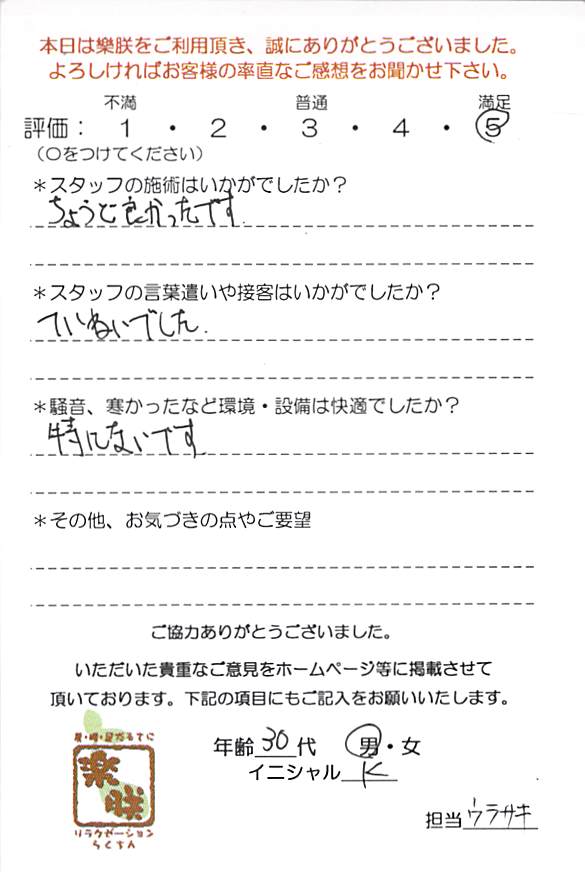 本日は樂朕をご利用頂き、誠にありがとうございました。
よろしければお客様の率直なご感想をお聞かせ下さい。
不満 普通 満足
評価： 1 ・ 2 ・ 3 ・ 4 ・ 5
（○をつけてください）
＊スタッフの施術はいかがでしたか？
ちょうど良かったです
＊スタッフの言葉遣いや接客はいかがでしたか？
ていねいでした.
＊騒音、寒かったなど環境・設備は快適でしたか？
特にないです
＊その他、お気づきの点やご要望
ご協力ありがとうございました。
いただいた貴重なご意見をホームページ等に掲載させて
頂いております。下記の項目にもご記入をお願いいたします。
年齢 30 代 男・女
イニシャル K
担当 ウラサキ
樂
朕
リラクゼーション
らくちん